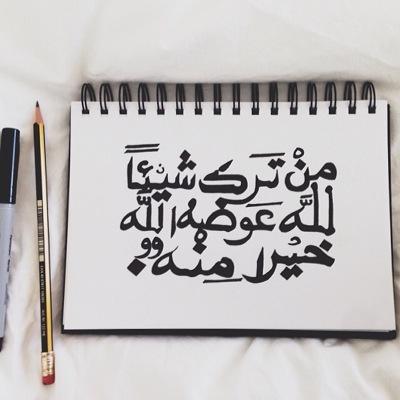 مَنْ تَرَكَ شَيْئاً
للَّه عَوَضَهُ اللَّه
خَيْرا مِنْه